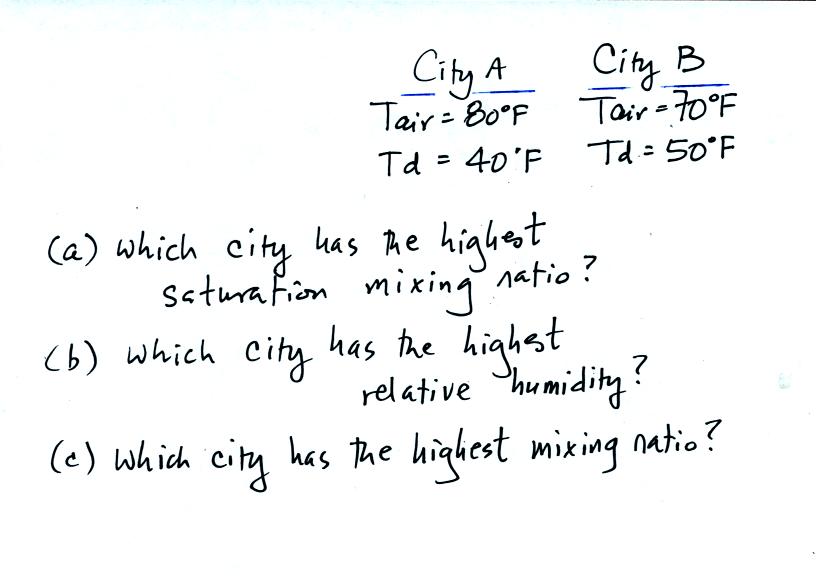 City A City B
Tair = 80°F Tair = 70°F
Td = 40°F Td = 50°F
(a) which city has the highest
saturation mixing ratio?
(b) which city has the highest
relative humidity?
(c) which city has the highest mixing ratio?